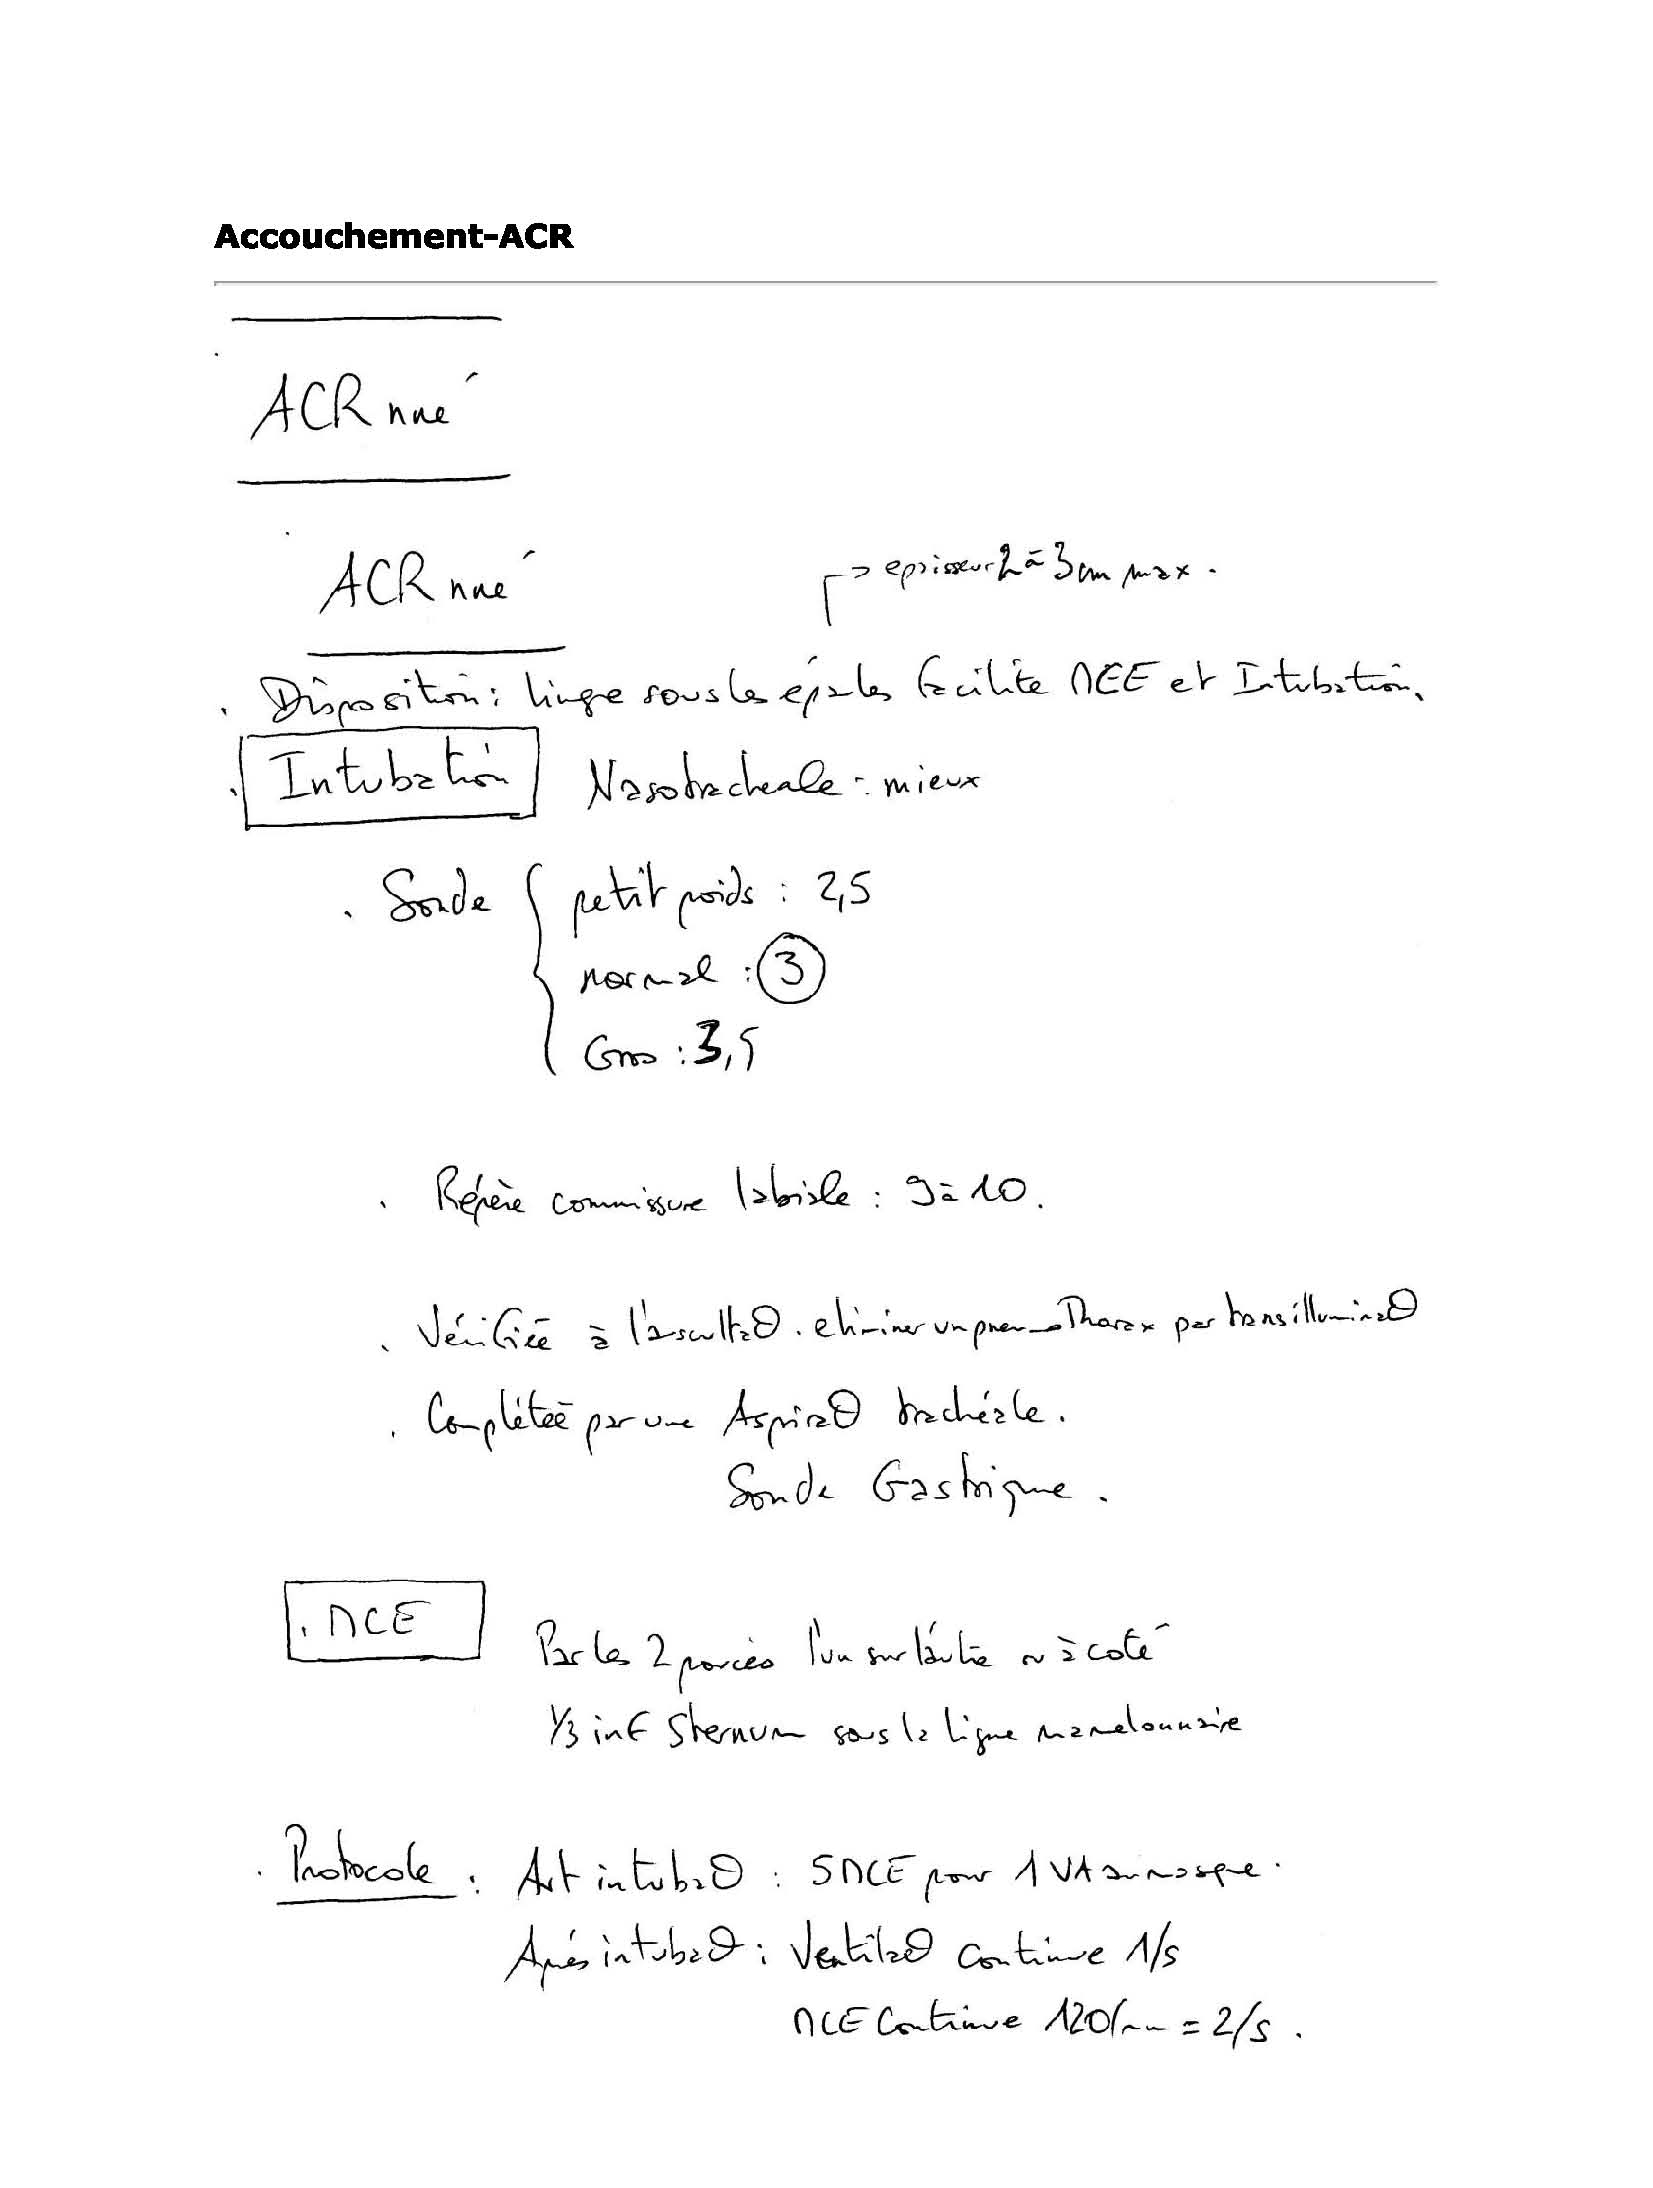 Accouchement-ACR
ACR nné
ACR nné
→ epaisseur 2 à 3 cm max.
. Disposition : linge sous les épales facilite MCE et Intubation.
. Intubation Nasotracheale : mieux
. Sonde { petit poids : 2,5
normal : 3
Gros : 3,5
. Répère commissure labiale : 9 à 10.
. Vérifiée à l'ascultaθ. eliminer un pneumoThorax par transilluminaθ
. Complétée par une Aspiraθ trachéale.
Sonde Gastrique.
. MCE
Par les 2 pouces l'un sur l'autre ou à coté
1/3 inf Sternum sous la ligne mamelonnaire
. Protocole : Avt intubaθ : 5 MCE pour 1 VA au masque.
Après intubaθ : Ventilaθ continue 1/s
MCE Continue 120/mn = 2/s.